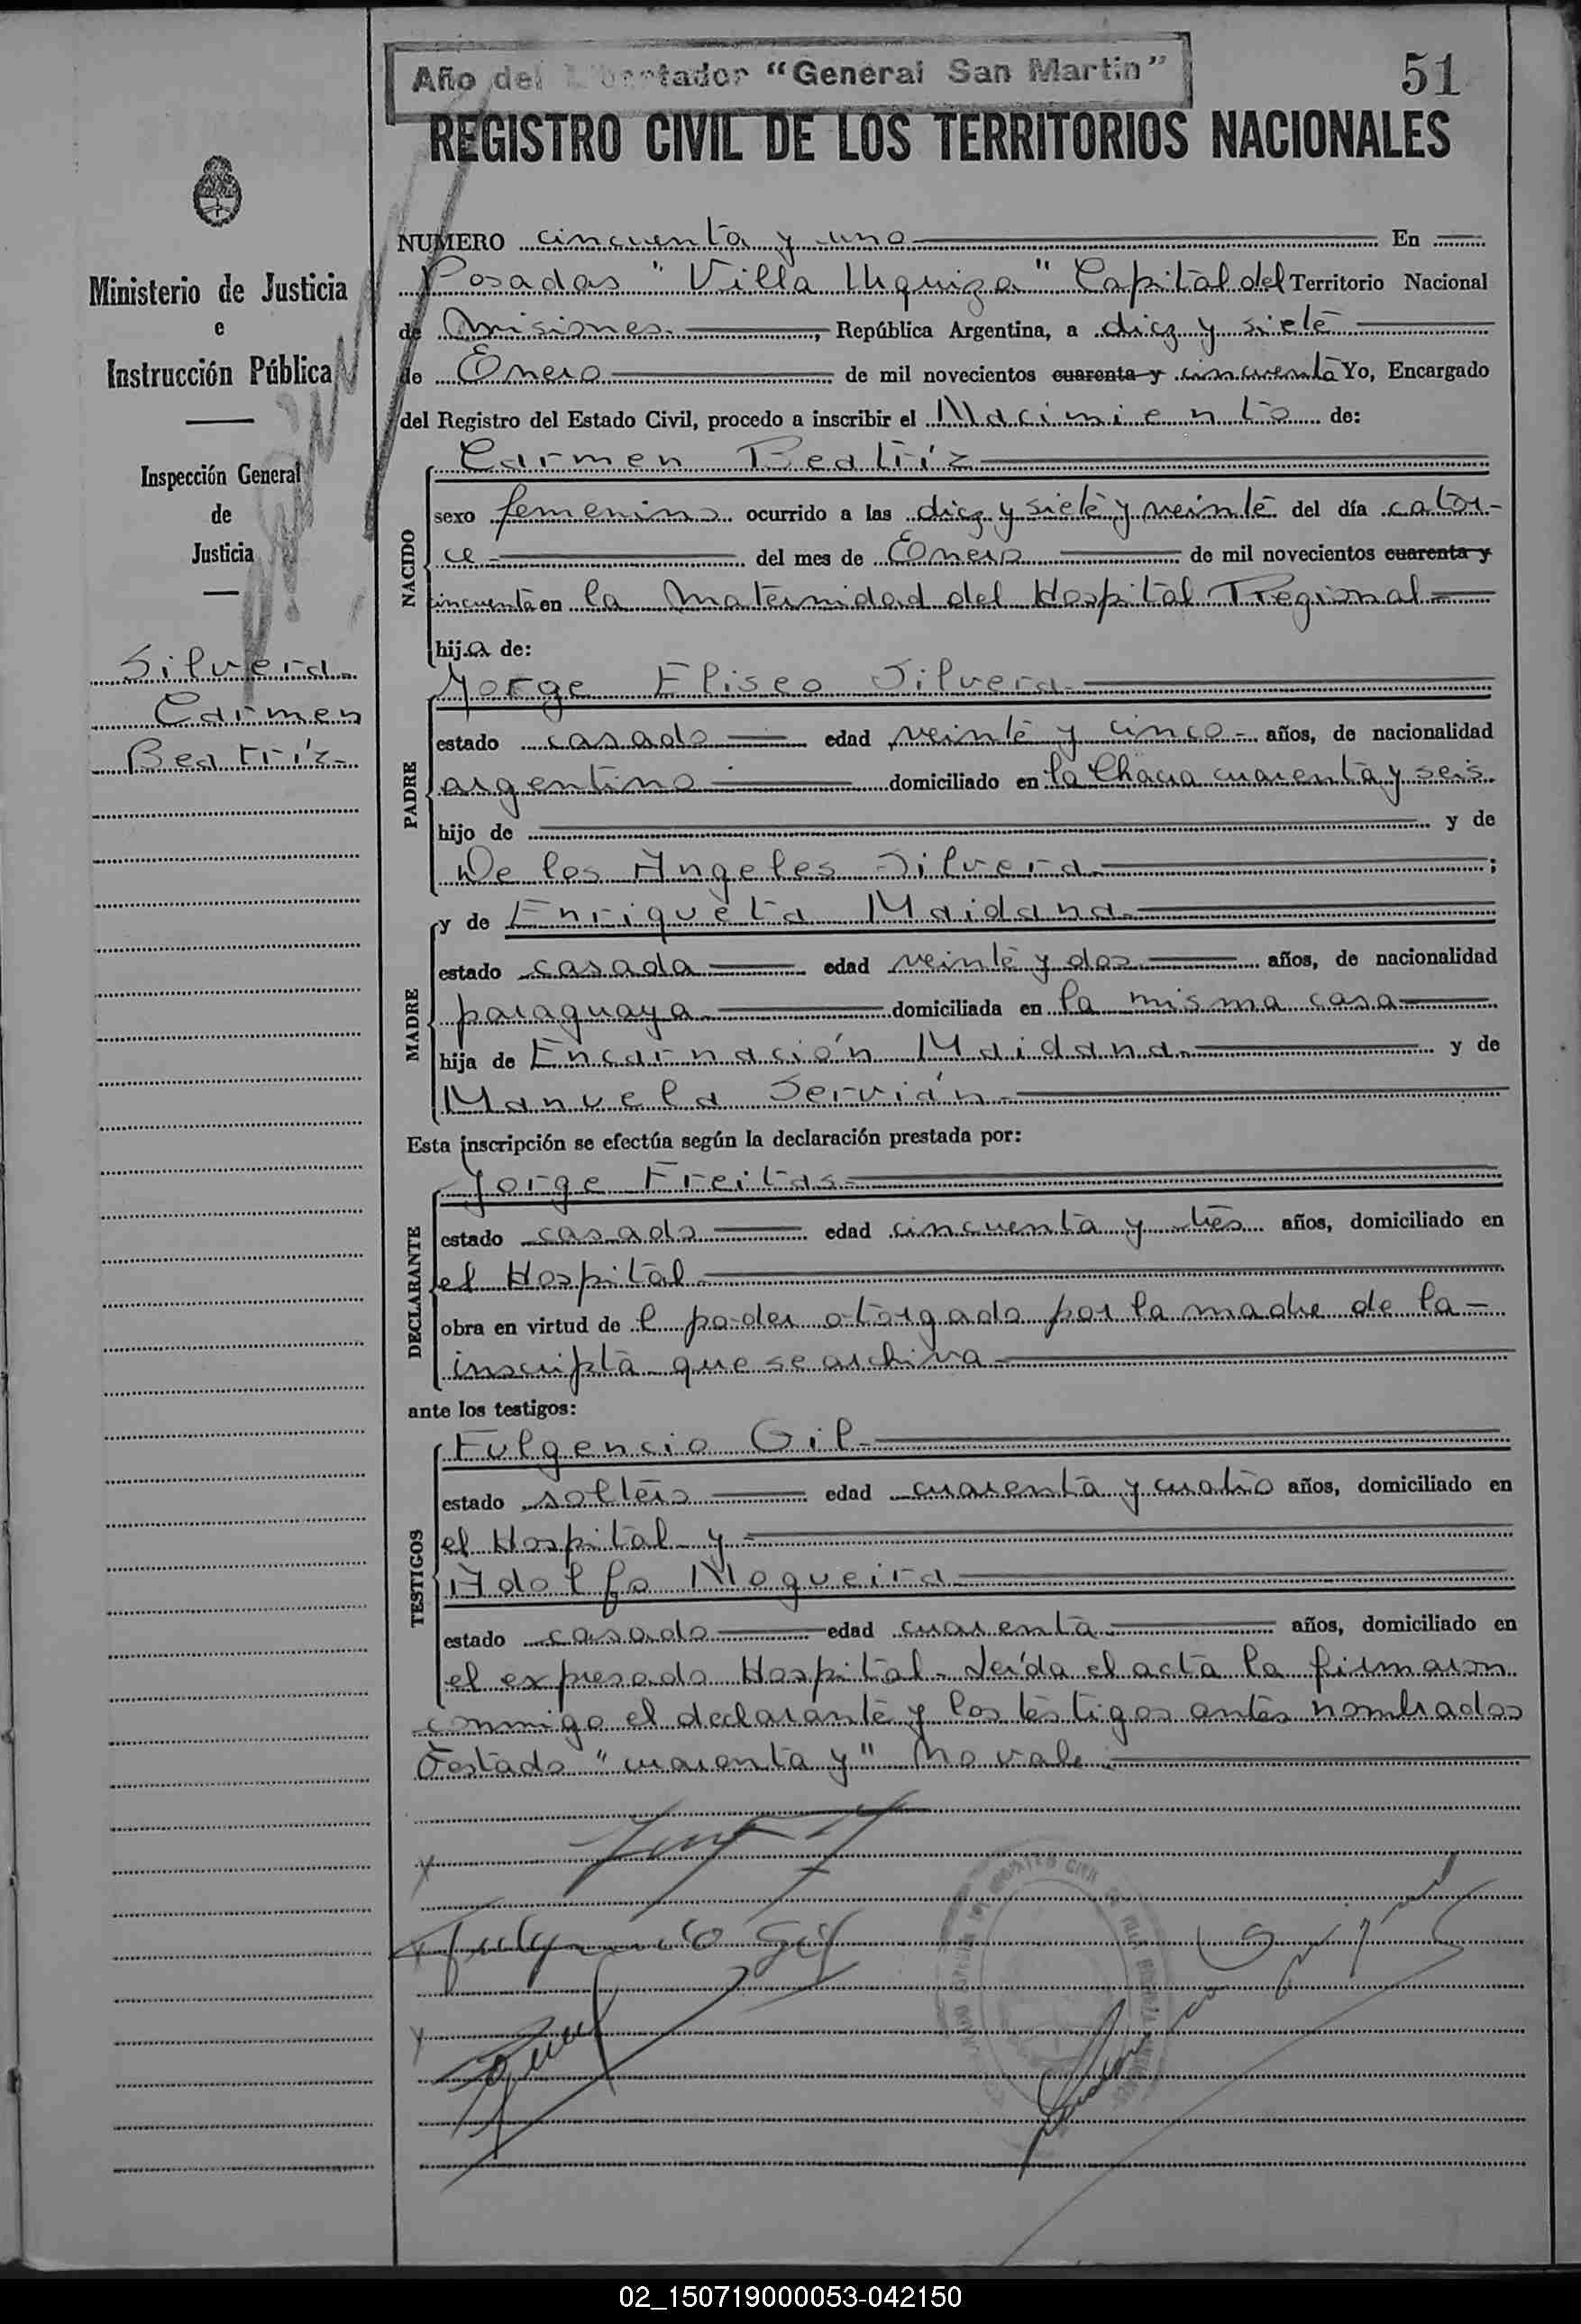 Año del Libertador "General San Martin"
51
REGISTRO CIVIL DE LOS TERRITORIOS NACIONALES
Ministerio de Justicia
e
Instrucción Pública
Inspección General
de
Justicia
Silvera
Carmen
Beatríz
NUMERO cincuenta y uno En
Posadas "Villa Urquiza" Capital del Territorio Nacional
de Misiones, República Argentina, a diez y siete
de Enero de mil novecientos cuarenta y cincuenta Yo, Encargado
del Registro del Estado Civil, procedo a inscribir el Nacimiento de:
NACIDO
Carmen Beatríz
sexo femenino ocurrido a las diez y siete y veinte del día cator-
ce del mes de Enero de mil novecientos cuarenta y
cincuenta en la Maternidad del Hospital Regional
hija de:
PADRE
Jorge Eliseo Silvera
estado casado edad veinte y cinco años, de nacionalidad
argentino domiciliado en la Chacra cuarenta y seis
hijo de y de
De los Angeles Silvera;
MADRE
y de Enriqueta Maidana
estado casada edad veinte y dos años, de nacionalidad
paraguaya domiciliada en la misma casa
hija de Encarnación Maidana y de
Manuela Servián
Esta inscripción se efectúa según la declaración prestada por:
DECLARANTE
Jorge Freitas
estado casado edad cincuenta y tres años, domiciliado en
el Hospital
obra en virtud de l poder otorgado por la madre de la
inscripta que se archiva
ante los testigos:
TESTIGOS
Fulgencio Gil
estado soltero edad cuarenta y cuatro años, domiciliado en
el Hospital y
Adolfo Nogueira
estado casado edad cuarenta años, domiciliado en
el expresado Hospital. Leída el acta la firmaron
conmigo el declarante y los testigos antes nombrados
Testado "cuarenta y" No vale
Fulgencio Gil
02_150719000053-042150